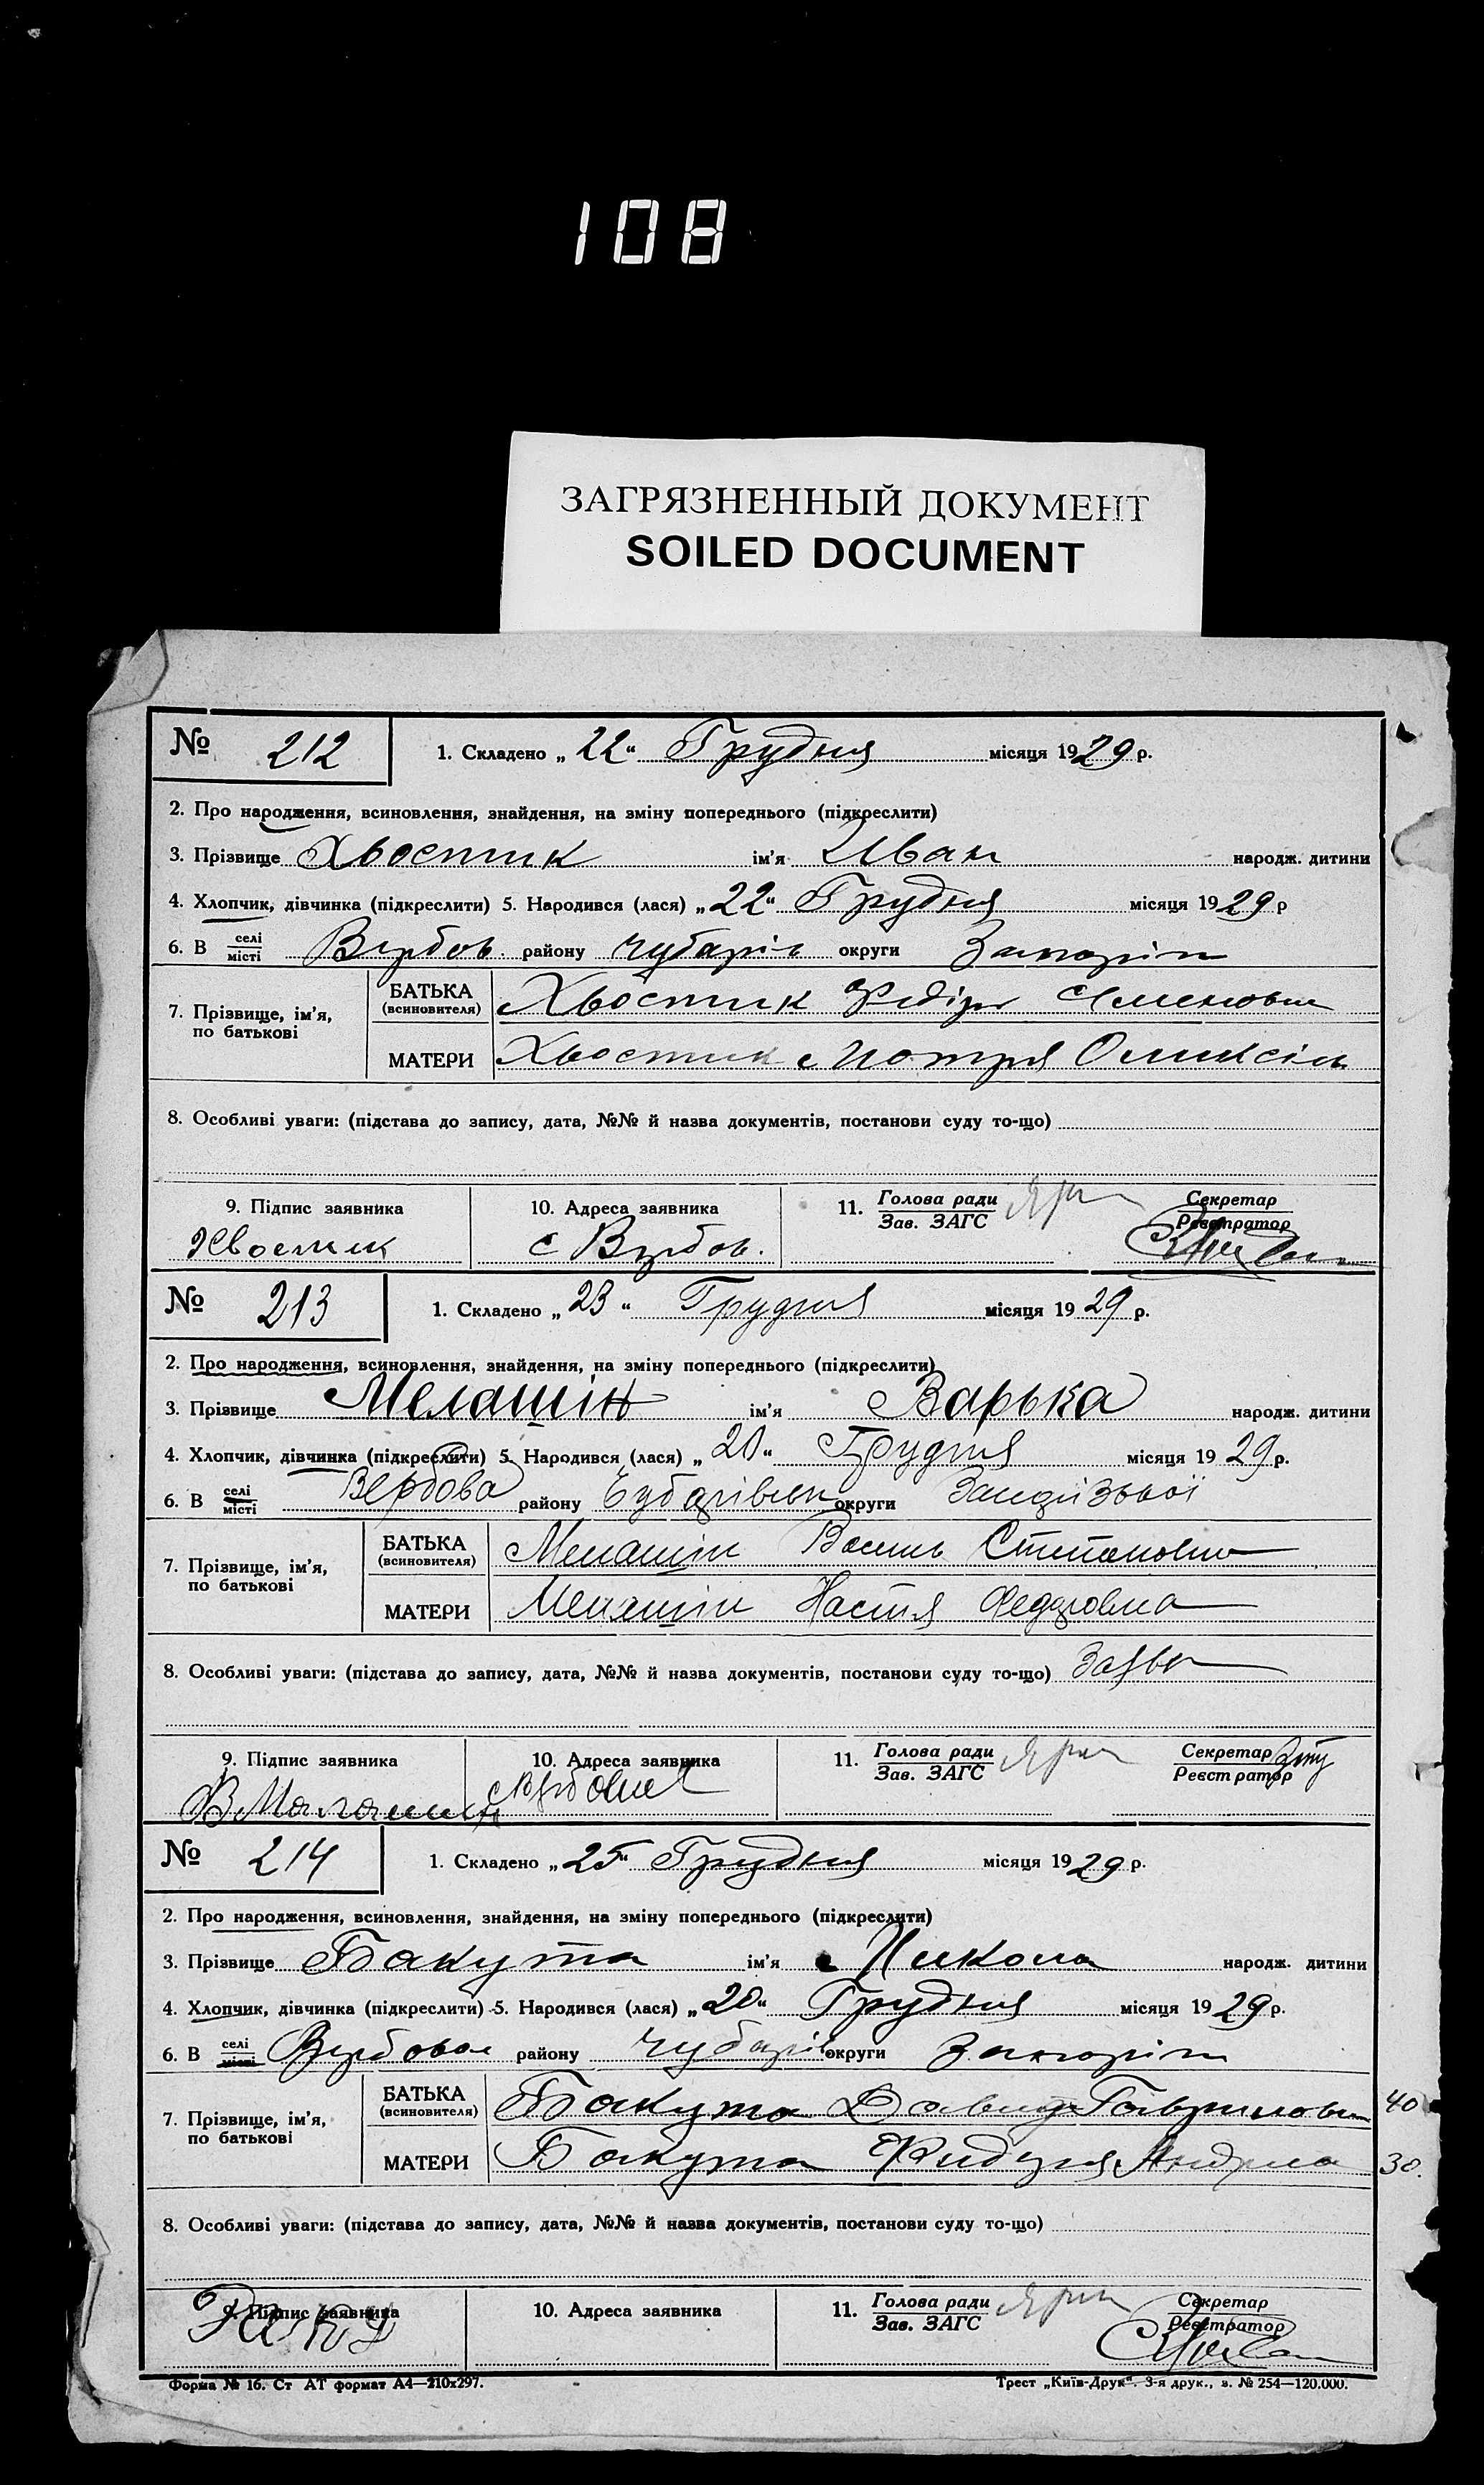 108
ЗАГРЯЗНЕННЫЙ ДОКУМЕНТ
SOILED DOCUMENT
№ 212 1. Складено „22“ Грудня місяця 1929 р.
2. Про народження, всиновлення, знайдення, на зміну попереднього (підкреслити)
3. Прізвище Хвостик ім'я Иван народж. дитини
4. Хлопчик, дівчинка (підкреслити) 5. Народився (лася) „22“ Грудня місяця 1929 р
6. В селі місті Вербов. району Чубарів округи Запоріж
7. Прізвище, ім'я, по батькові БАТЬКА (всиновителя) Хвостик Федір Семенович
МАТЕРИ Хвостик Мотря Оликсіів
8. Особливі уваги: (підстава до запису, дата, №№ й назва документів, постанови суду то-що)
9. Підпис заявника 10. Адреса заявника 11. Голова ради Зав. ЗАГС Секретар Реєстратор
Хвостик с Вербов.
№ 213 1. Складено „23“ Грудня місяця 1929 р.
2. Про народження, всиновлення, знайдення, на зміну попереднього (підкреслити)
3. Прізвище Мелашін ім'я Варька народж. дитини
4. Хлопчик, дівчинка (підкреслити) 5. Народився (лася) „20“ Грудня місяця 1929 р.
6. В селі місті Вербова району округи
7. Прізвище, ім'я, по батькові БАТЬКА (всиновителя) Мелашін Василь Степанович
МАТЕРИ Мелашін Настя Федоровна
8. Особливі уваги: (підстава до запису, дата, №№ й назва документів, постанови суду то-що) Заява
9. Підпис заявника 10. Адреса заявника 11. Голова ради Зав. ЗАГС Секретар Реєстратор
В Малашин
№ 214 1. Складено „25“ Грудня місяця 1929 р.
2. Про народження, всиновлення, знайдення, на зміну попереднього (підкреслити)
3. Прізвище Бакута ім'я Микола народж. дитини
4. Хлопчик, дівчинка (підкреслити) 5. Народився (лася) „20“ Грудня місяця 1929 р.
6. В селі місті Вербовое району Чубарів округи Запоріж
7. Прізвище, ім'я, по батькові БАТЬКА (всиновителя) Бакута Давид Гаврилович 40
МАТЕРИ Бакута 30.
8. Особливі уваги: (підстава до запису, дата, №№ й назва документів, постанови суду то-що)
9. Підпис заявника 10. Адреса заявника 11. Голова ради Зав. ЗАГС Секретар Реєстратор
Форма № 16. Ст АТ формат А4—210х297. Трест „Київ-Друк“. 3-я друк., з. № 254—120.000.